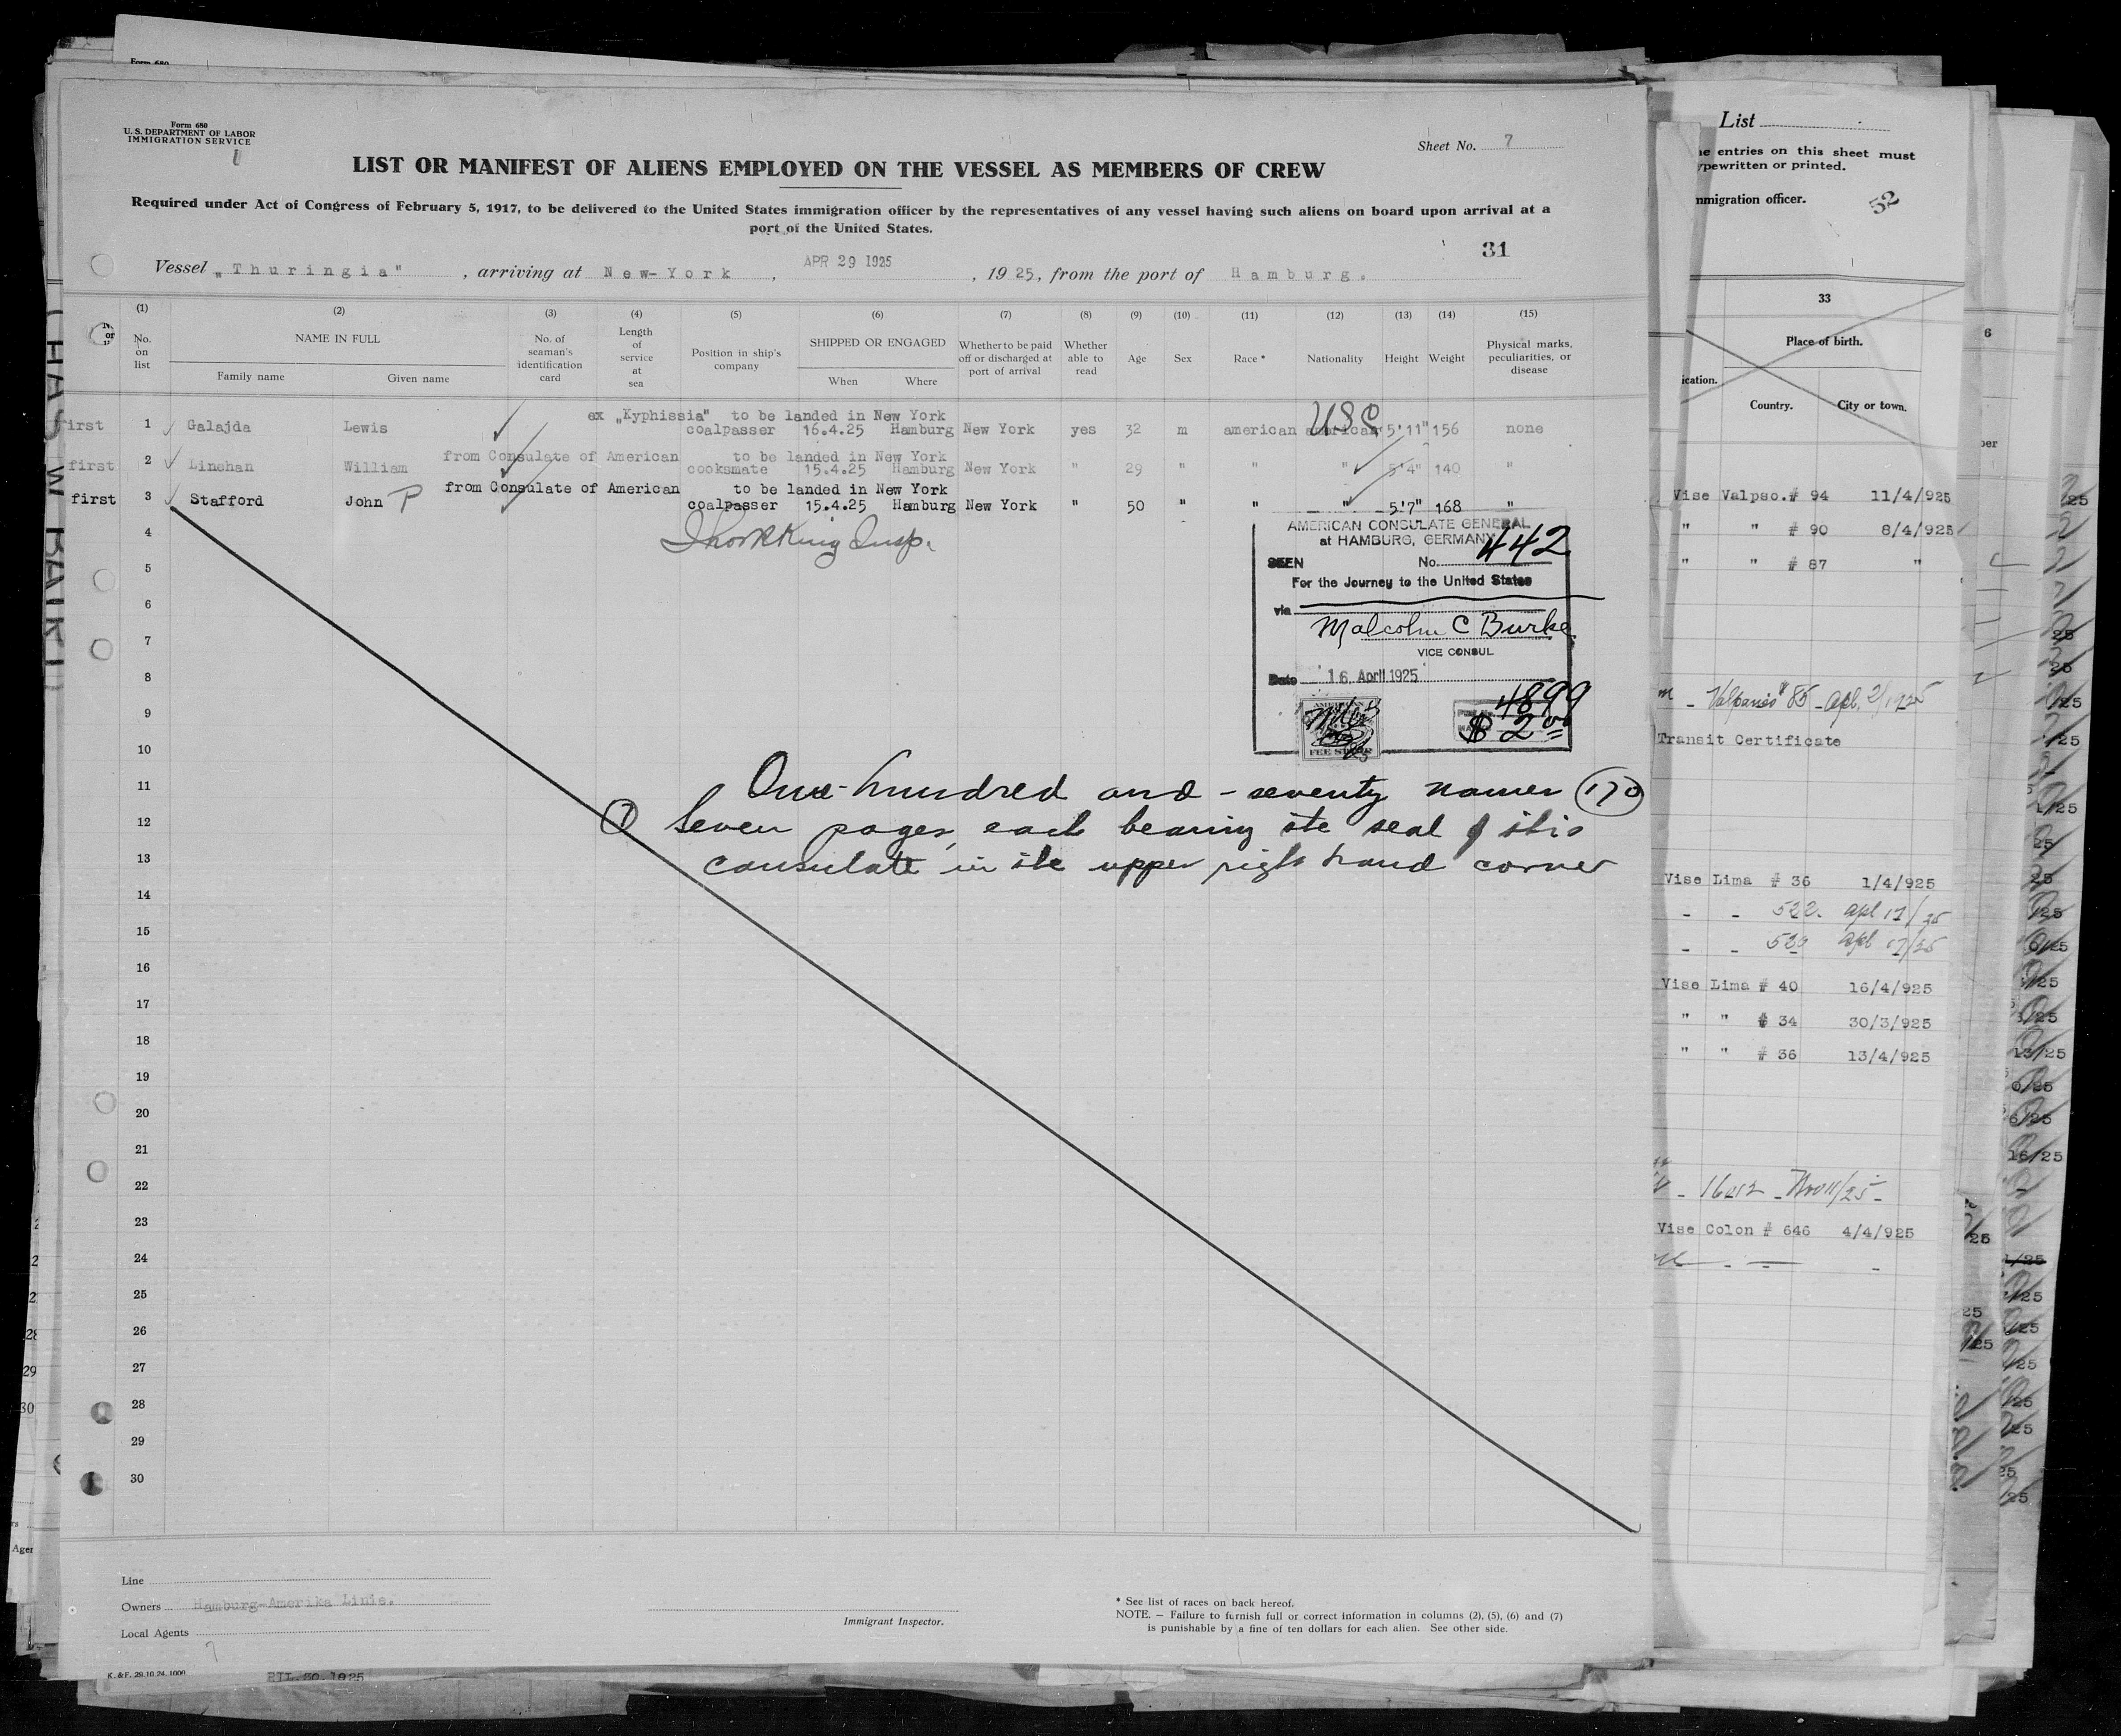 Form 680
U. S. DEPARTMENT OF LABOR
IMMIGRATION SERVICE
Sheet No. 7
LIST OR MANIFEST OF ALIENS EMPLOYED ON THE VESSEL AS MEMBERS OF CREW
Required under Act of Congress of February 5, 1917, to be delivered to the United States immigration officer by the representatives of any vessel having such aliens on board upon arrival at a
port of the United States.
31
Vessel „Thuringia" , arriving at New-York , APR 29 1925 , 1925, from the port of Hamburg.
(1) (2) (3) (4) (5) (6) (7) (8) (9) (10) (11) (12) (13) (14) (15)
No. on list
NAME IN FULL
Family name Given name
No. of seaman's identification card
Length of service at sea
Position in ship's company
SHIPPED OR ENGAGED
When Where
Whether to be paid off or discharged at port of arrival
Whether able to read
Age Sex Race * Nationality Height Weight
Physical marks, peculiarities, or disease
ex „Kyphissia" to be landed in New York
first 1 Galajda Lewis coalpasser 16.4.25 Hamburg New York yes 32 m american american USC 5'11" 156 none
from Consulate of American to be landed in New York
first 2 Linehan William cooksmate 15.4.25 Hamburg New York " 29 " " " 5'4" 140 "
from Consulate of American to be landed in New York
first 3 Stafford John P coalpasser 15.4.25 Hamburg New York " 50 " " " 5'7" 168 "
4
5
6
7
8
9
10
11
12
13
14
15
16
17
18
19
20
21
22
23
24
25
26
27
28
29
30
King Insp.
AMERICAN CONSULATE GENERAL
at HAMBURG, GERMANY
SEEN No. 442
For the Journey to the United States
via
Malcolm C Burke
VICE CONSUL
Date 16 April 1925
4899
$ 2 00
FEE STAMP
One-hundred and-seventy names (170)
(7) Seven pages, each bearing the seal of this
consulate in the upper right hand corner
Line
Owners Hamburg-Amerika Linie.
Local Agents
Immigrant Inspector.
* See list of races on back hereof.
NOTE. — Failure to furnish full or correct information in columns (2), (5), (6) and (7)
is punishable by a fine of ten dollars for each alien. See other side.
K. & F. 29.10.24. 1000
RIL.30.1925
List
entries on this sheet must
typewritten or printed.
mmigration officer.
52
33
Place of birth.
ication.
Country. City or town.
Vise Valpso. # 94 11/4/925
" " # 90 8/4/925
" " # 87 "
85
Transit Certificate
Vise Lima # 36 1/4/925
- - 522. apl 17/25
- - 530 apl 17/25
Vise Lima # 40 16/4/925
" " # 34 30/3/925
" " # 36 13/4/925
Vise Colon # 646 4/4/925
6